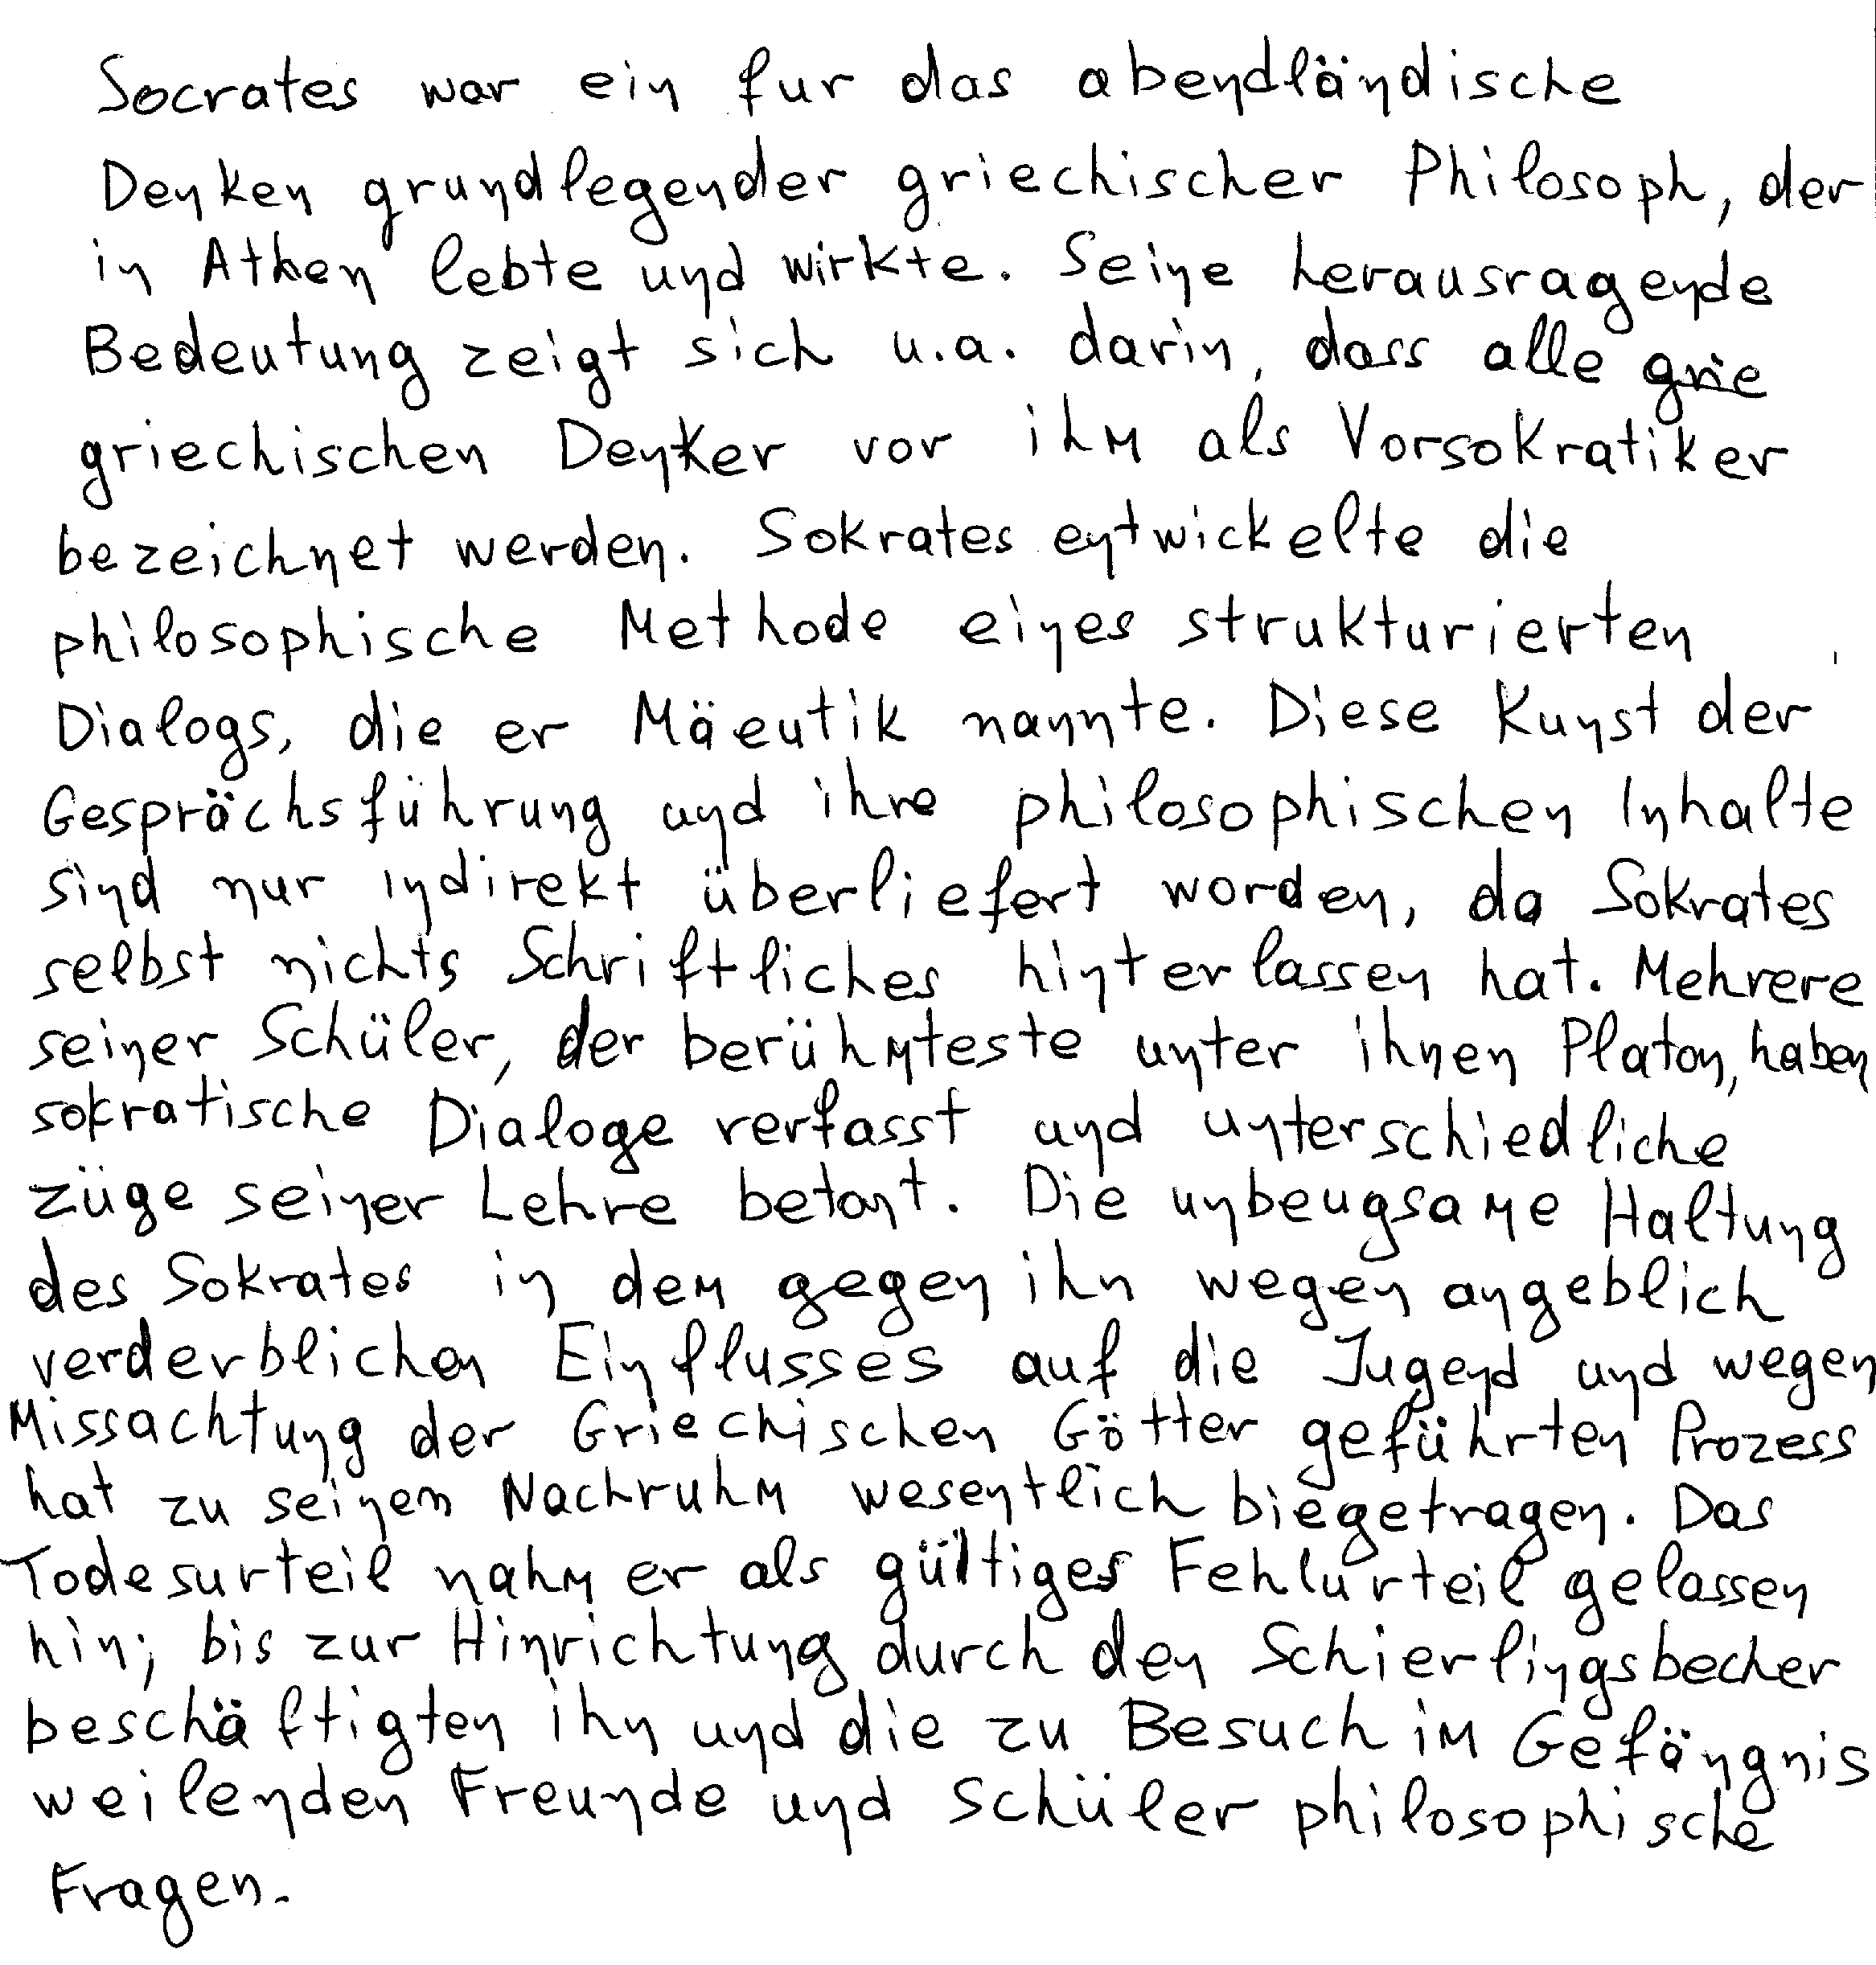 Socrates war ein fur das abendländische
Denken grundlegender griechischer Philosoph, der
in Athen lebte und wirkte. Seine herausragende
Bedeutung zeigt sich u.a. darin, dass alle grie
griechischen Denker vor ihm als Vorsokratiker
bezeichnet werden. Sokrates entwickelte die
philosophische Methode eines strukturierten
Dialogs, die er Mäeutik nannte. Diese Kunst der
Gesprächsführung und ihre philosophischen Inhalte
sind nur indirekt überliefert worden, da Sokrates
selbst nichts Schriftliches hinterlassen hat. Mehrere
seiner Schüler, der berühmteste unter ihnen Platon, haben
sokratische Dialoge verfasst und unterschiedliche
züge seiner Lehre betont. Die unbeugsame Haltung
des Sokrates in dem gegen ihn wegen angeblich
verderblichen Einflusses auf die Jugend und wegen
Missachtung der Griechischen Götter geführten Prozess
hat zu seinem Nachruhm wesentlich biegetragen. Das
Todesurteil nahm er als gültiges Fehlurteil gelassen
hin; bis zur Hinrichtung durch den Schierlingsbecher
beschäftigten ihn und die zu Besuch im Gefängnis
weilenden Freunde und Schüler philosophische
Fragen.